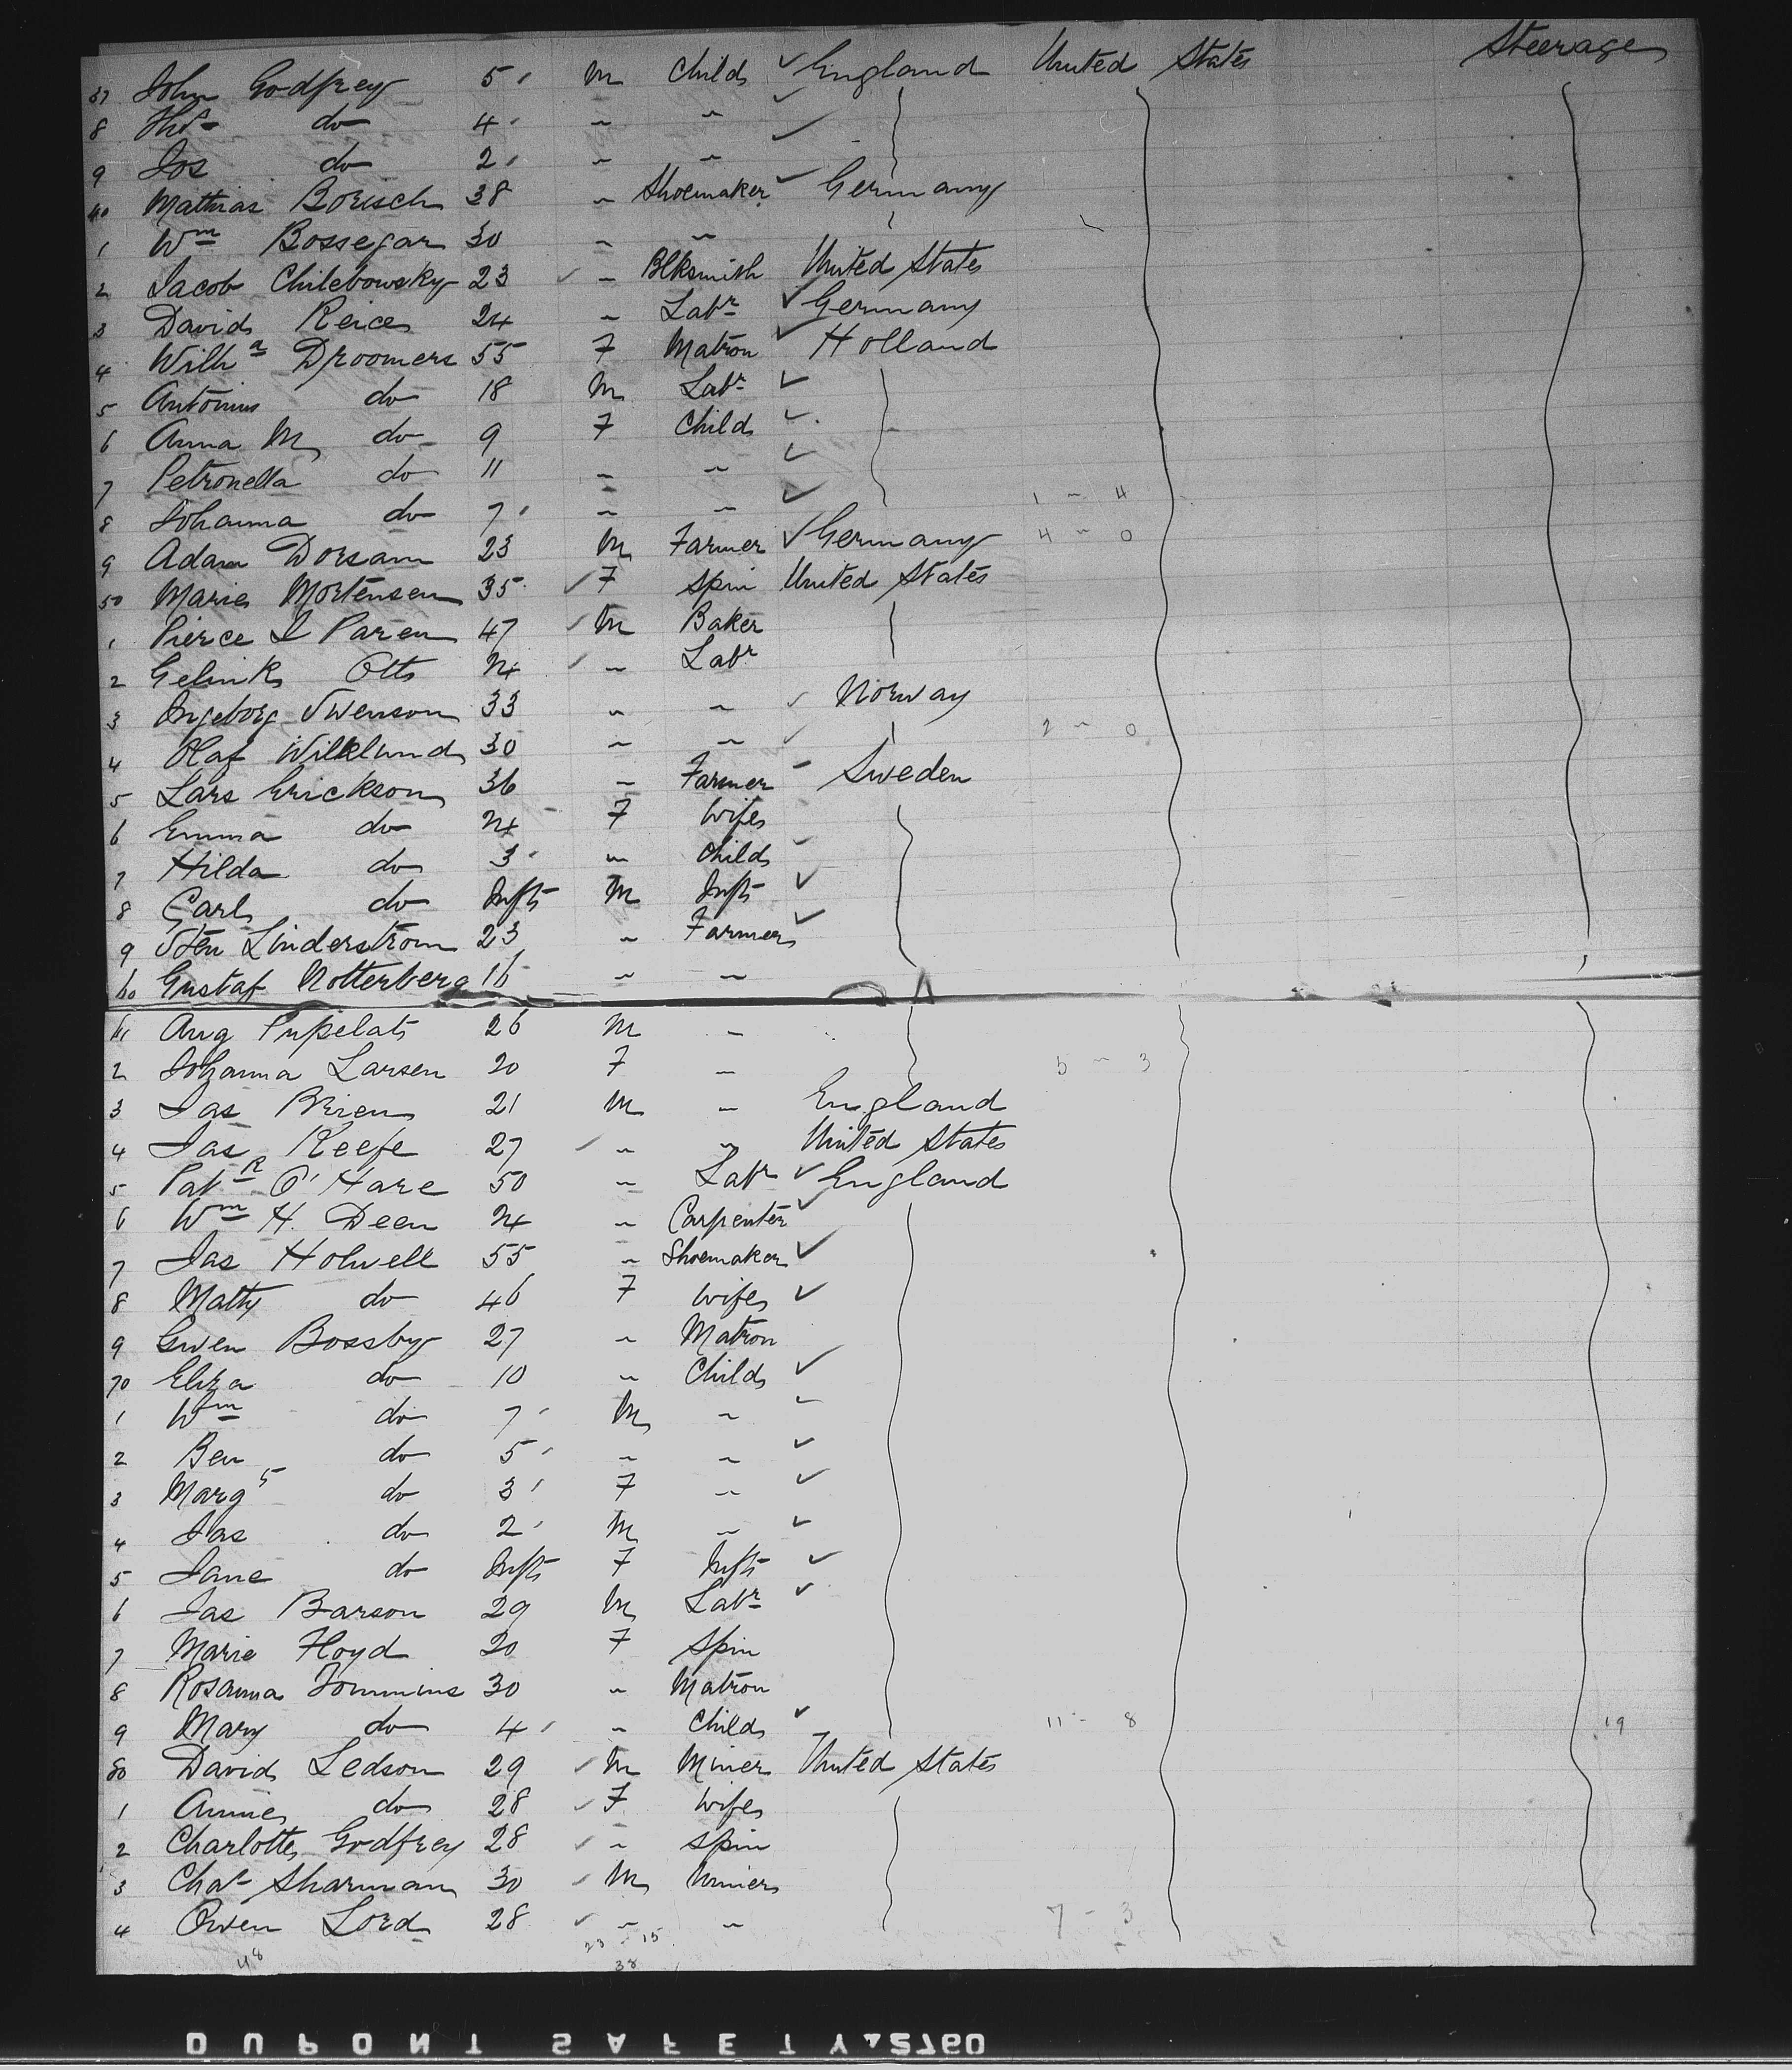 37 John Godfrey 5 m Child ✓ England United States Steerage
8 Thos do 4 " " ✓
9 Jos do 2 " " ✓
40 Mathias Borisch 38 " Shoemaker ✓ Germany
1 Wm Bossegar 30 " "
2 Jacob Chilebowsky 23 ✓ " Blksmith United States
3 David Reice 24 " Labr ✓ Germany
4 Wilha Droomers 55 F Matron ✓ Holland
5 Antonius do 18 M Labr ✓
6 Anna M do 9 F Child ✓
7 Petronella do 11 " " ✓
8 Johanna do 7 " " ✓ 1 - 4
9 Adam Dorsam 23 M Farmer ✓ Germany 4 - 0
50 Marie Mortensen 35 ✓ F Spin United States
1 Pierce I Paren 47 ✓ M Baker
2 Gelink Otto 24 ✓ " Labr
3 Ingeborg Swenson 33 " " ✓ Norway
4 Olaf Wilklund 30 " " ✓ 2 - 0
5 Lars Erickson 36 " Farmer Sweden
6 Emma do 24 F Wife
7 Hilda do 3 " Child ✓
8 Carl do Inft M Inft ✓
9 Sten Linderstrom 23 " Farmer ✓
60 Gustaf Notterberg 16 " "
61 Aug Pupelat 26 M "
2 Johanna Larsen 20 F " 5 - 3
3 Jas Brien 21 M " England
4 Jas Keefe 27 ✓ " " United States
5 Patk O'Hare 50 " Labr ✓ England
6 Wm H. Deen 24 " Carpenter ✓
7 Jas Holwell 55 " Shoemaker ✓
8 Matty do 46 F Wife ✓
9 Gwen Bossby 27 " Matron
70 Eliza do 10 " Child ✓
1 Wm do 7 M " ✓
2 Ben do 5 " " ✓
3 Margt do 3 F " ✓
4 Jas do 2 M " ✓
5 Jane do Inft F Inft ✓
6 Jas Barson 29 M Labr ✓
7 Marie Floyd 20 F Spin
8 Rosanna Tommins 30 " Matron
9 Mary do 4 " Child ✓ 11 - 8 19
80 David Ledson 29 ✓ M Miner United States
1 Annie do 28 ✓ F Wife
2 Charlotte Godfrey 28 ✓ " Spin
3 Chas Sharman 30 ✓ M Miner
4 Owen Lord 28 ✓ " " 7 - 3
48 23 - 15
38
DUPONT SAFETY